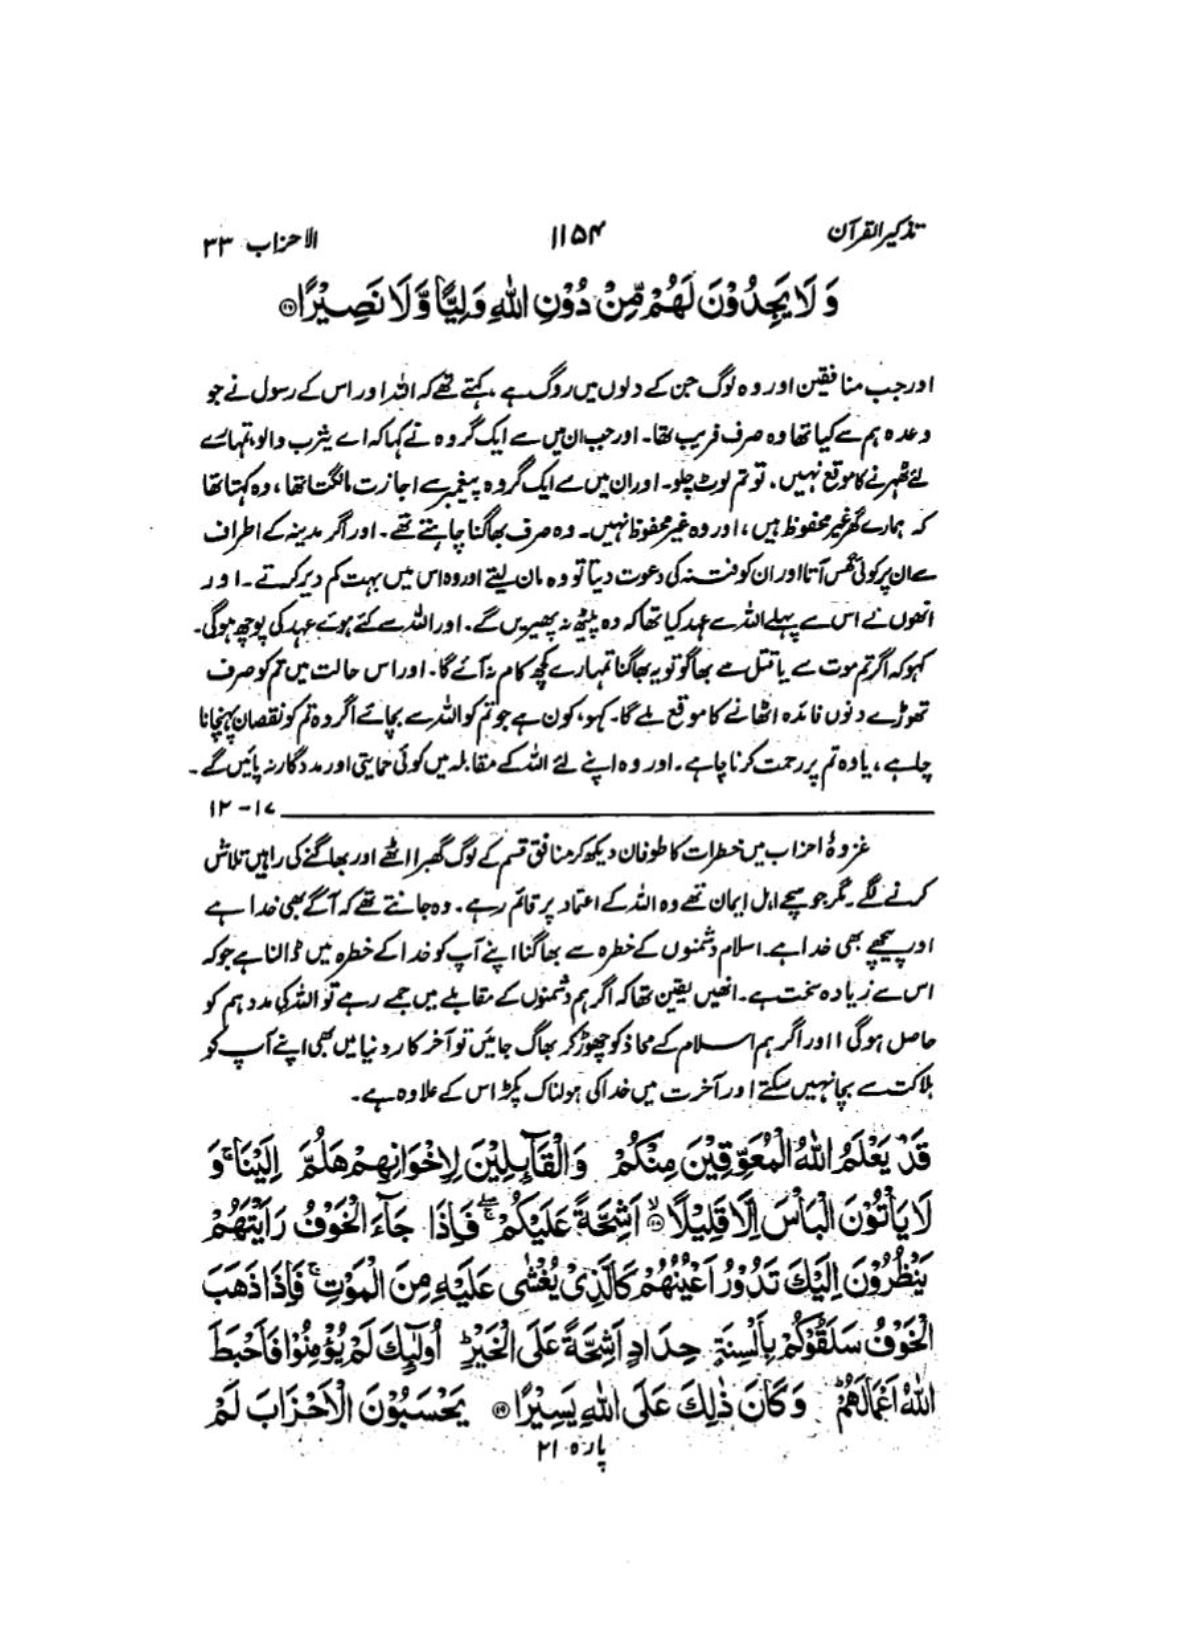 تذکیر القرآن ۱۱۵۴ الاحزاب ۳۳
وَلَا يَجِدُوْنَ لَهُمْ مِّنْ دُوْنِ اللّٰهِ وَلِيًّا وَّلَا نَصِيْرًا ۝۱۷
اور جب منافقین اور وہ لوگ جن کے دلوں میں روگ ہے، کہتے تھے کہ اللہ اور اس کے رسول نے جو
وعدہ ہم سے کیا تھا وہ صرف فریب تھا۔ اور جب ان میں سے ایک گروہ نے کہا کہ اے یثرب والو، تمہارے
لئے ٹھہرنے کا موقع نہیں، تو تم لوٹ چلو۔ اور ان میں سے ایک گروہ پیغمبر سے اجازت مانگتا تھا، وہ کہتا تھا
کہ ہمارے گھر غیر محفوظ ہیں، اور وہ غیر محفوظ نہیں۔ وہ صرف بھاگنا چاہتے تھے۔ اور اگر مدینہ کے اطراف
سے ان پر کوئی گھس آتا اور ان کو فتنہ کی دعوت دیتا تو وہ مان لیتے اور وہ اس میں بہت کم دیر کرتے۔ اور
انھوں نے اس سے پہلے اللہ سے عہد کیا تھا کہ وہ پیٹھ نہ پھیریں گے۔ اور اللہ سے کئے ہوئے عہد کی پوچھ ہوگی۔
کہو کہ اگر تم موت سے یا قتل سے بھاگو تو یہ بھاگنا تمہارے کچھ کام نہ آئے گا۔ اور اس حالت میں تم کو صرف
تھوڑے دنوں فائدہ اٹھانے کا موقع ملے گا۔ کہو، کون ہے جو تم کو اللہ سے بچائے اگر وہ تم کو نقصان پہنچانا
چاہے، یا وہ تم پر رحمت کرنا چاہے۔ اور وہ اپنے لئے اللہ کے مقابلہ میں کوئی حمایتی اور مددگار نہ پائیں گے۔
۱۲-۱۷
غزوۂ احزاب میں خطرات کا طوفان دیکھ کر منافق قسم کے لوگ گھبرا اٹھے اور بھاگنے کی راہیں تلاش
کرنے لگے۔ مگر جو سچے اہل ایمان تھے وہ اللہ کے اعتماد پر قائم رہے۔ وہ جانتے تھے کہ آگے بھی خدا ہے
اور پیچھے بھی خدا ہے۔ اسلام دشمنوں کے خطرہ سے بھاگنا اپنے آپ کو خدا کے خطرہ میں ڈالنا ہے جو کہ
اس سے زیادہ سخت ہے۔ انھیں یقین تھا کہ اگر ہم دشمنوں کے مقابلے میں جمے رہے تو اللہ کی مدد ہم کو
حاصل ہوگی اور اگر ہم اسلام کے محاذ کو چھوڑ کر بھاگ جائیں تو آخر کار دنیا میں بھی اپنے آپ کو
ہلاکت سے بچا نہیں سکتے اور آخرت میں خدا کی ہولناک پکڑ اس کے علاوہ ہے۔
قَدْ يَعْلَمُ اللّٰهُ الْمُعَوِّقِيْنَ مِنْكُمْ وَالْقَآىِٕلِيْنَ لِاِخْوَانِهِمْ هَلُمَّ اِلَيْنَا ۚ وَ
لَا يَاْتُوْنَ الْبَاْسَ اِلَّا قَلِيْلًا ۝۱۸ۙ اَشِحَّةً عَلَيْكُمْ ۚۖ فَاِذَا جَآءَ الْخَوْفُ رَاَيْتَهُمْ
يَنْظُرُوْنَ اِلَيْكَ تَدُوْرُ اَعْيُنُهُمْ كَالَّذِيْ يُغْشٰى عَلَيْهِ مِنَ الْمَوْتِ ۚ فَاِذَا ذَهَبَ
الْخَوْفُ سَلَقُوْكُمْ بِاَلْسِنَةٍ حِدَادٍ اَشِحَّةً عَلَى الْخَيْرِ ؕ اُولٰٓىِٕكَ لَمْ يُؤْمِنُوْا فَاَحْبَطَ
اللّٰهُ اَعْمَالَهُمْ ؕ وَكَانَ ذٰلِكَ عَلَى اللّٰهِ يَسِيْرًا ۝۱۹ يَحْسَبُوْنَ الْاَحْزَابَ لَمْ
پارہ ۲۱